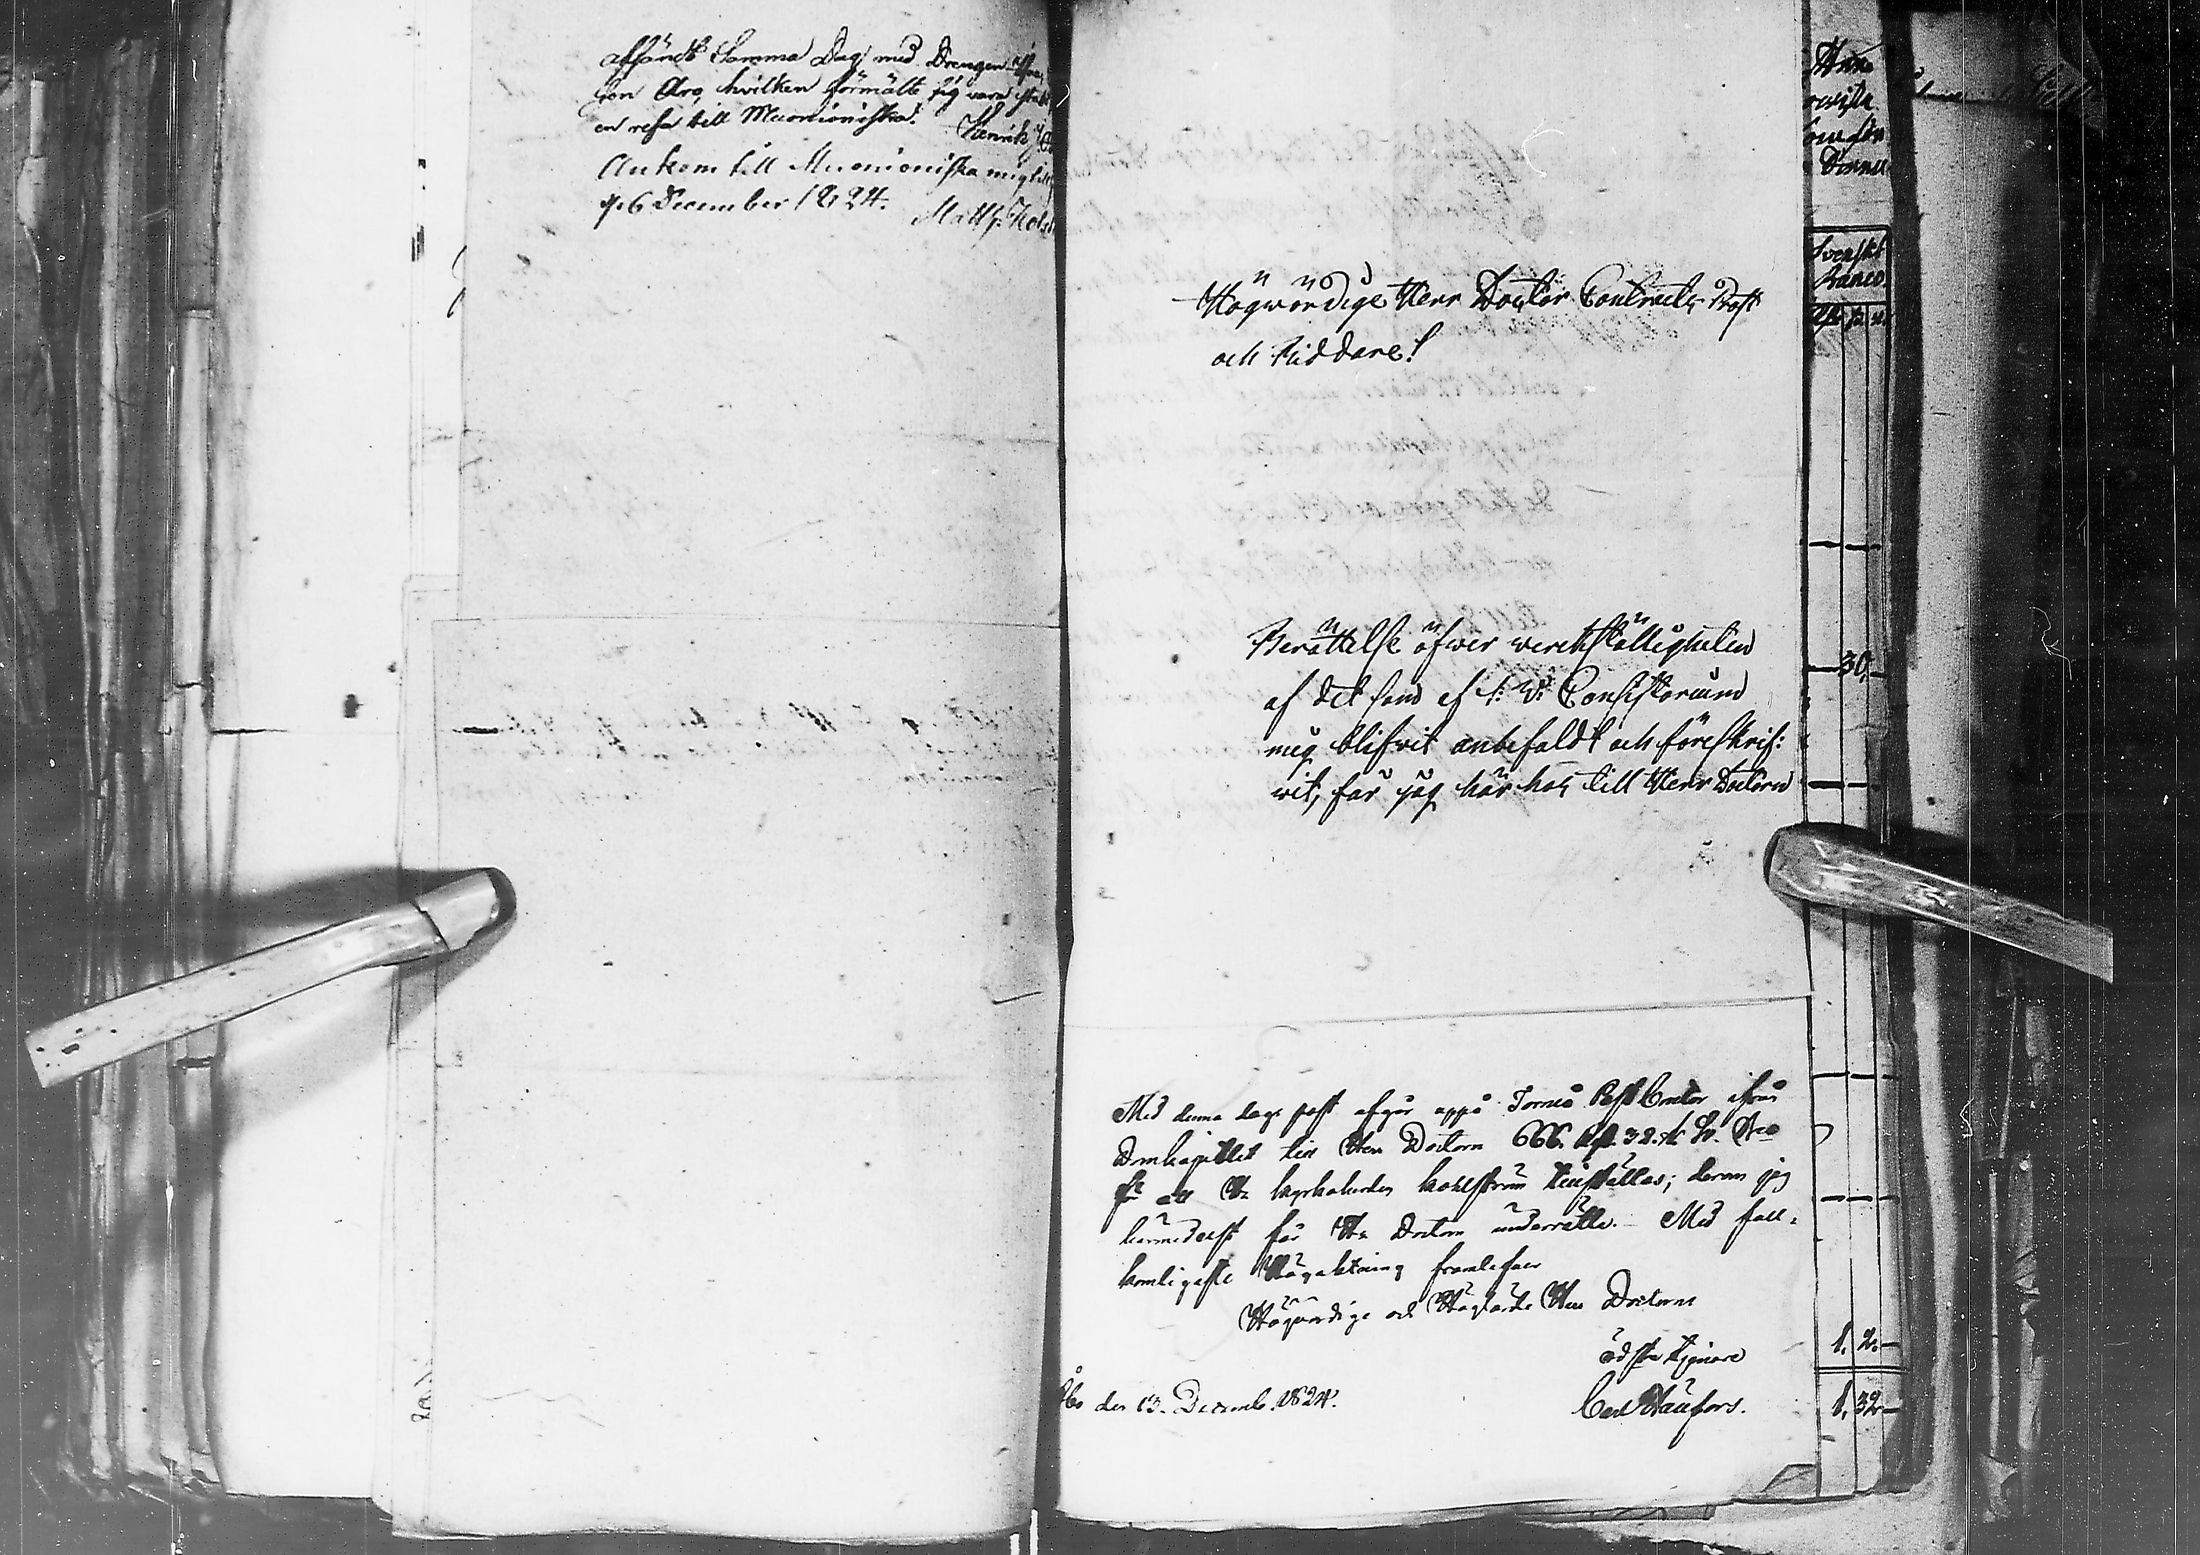 afsändt Samma Dag med Drengen
son Aro, hvilken förmälte sig vara
en resa till Muonioniska. Henrik
Ankom till Muonioniska
d. 6 December 1824. Matth. Kols
Högwördige Herr Doctor Contracts Prost
och Riddare!
Berättelse öfwer werckställigheten
af det som af S. V. Consistorium
mig blifwit anbefaldt och föreskrif:
wit, får jag här hos till Herr Doctorn
Med denna dags post afgår uppå Torneå Post Contor ifrån
Domkapitlet till Herr Doctorn 666. Rd. 32. sk.
för att Hr Kyrkoherden Kohlström tillställas; derom jag
härmedelst får Hr Doctorn underrätta. Med full-
komligaste Högaktning framlefver
Högvördige och Höglärde Herr Doctorns
ödm. tjenare
Åbo den 13. Decemb. 1824.
Svenskt
Banco
30.
1. 2.
1. 32